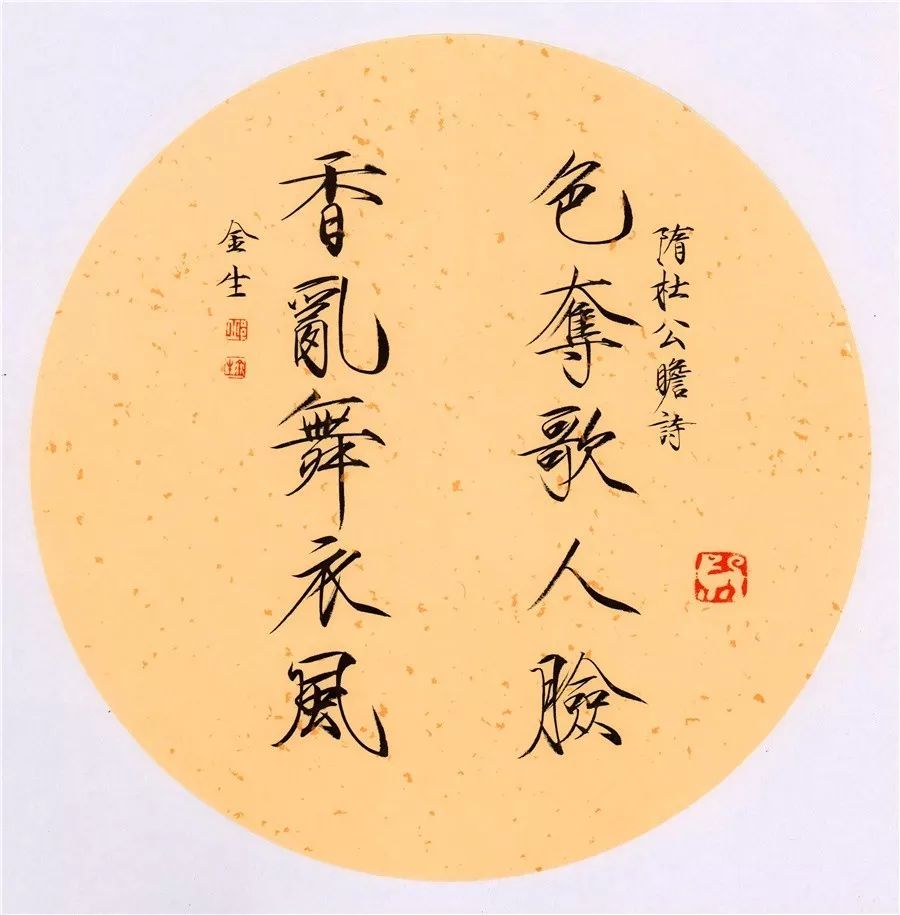 隋杜公瞻詩
色奪歌人臉
香亂舞衣風
金生